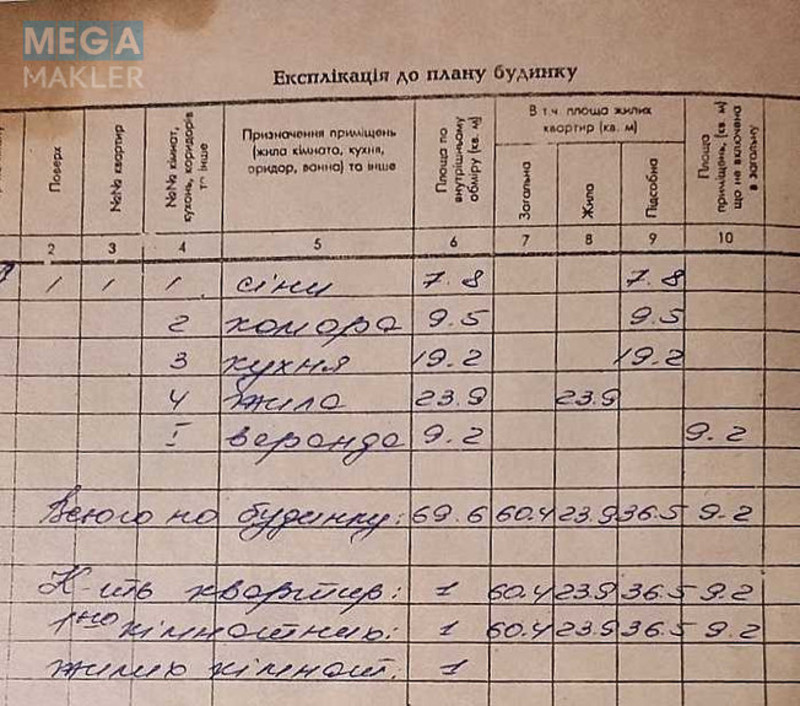 MEGA
MAKLER
Експлікація до плану будинку
Поверх
№№ квартир
№№ кімнат, кухонь, коридорів та інше
Призначення приміщень (жила кімната, кухня, оридор, ванна) та інше
Площа по внутрішньому обміру (кв. м)
В т.ч. площа жилих квартир (кв. м)
Загальна
Жила
Підсобна
Площа приміщень, (кв. м) що не включена в загальну
2 3 4 5 6 7 8 9 10
1 1 1 сіни 7.8 7.8
2 комора 9.5 9.5
3 кухня 19.2 19.2
4 жила 23.9 23.9
I веранда 9.2 9.2
Всього по будинку: 69.6 60.4 23.9 36.5 9.2
К-ить квартир: 1 60.4 23.9 36.5 9.2
1но кімнатних: 1 60.4 23.9 36.5 9.2
жилих кімнат. 1